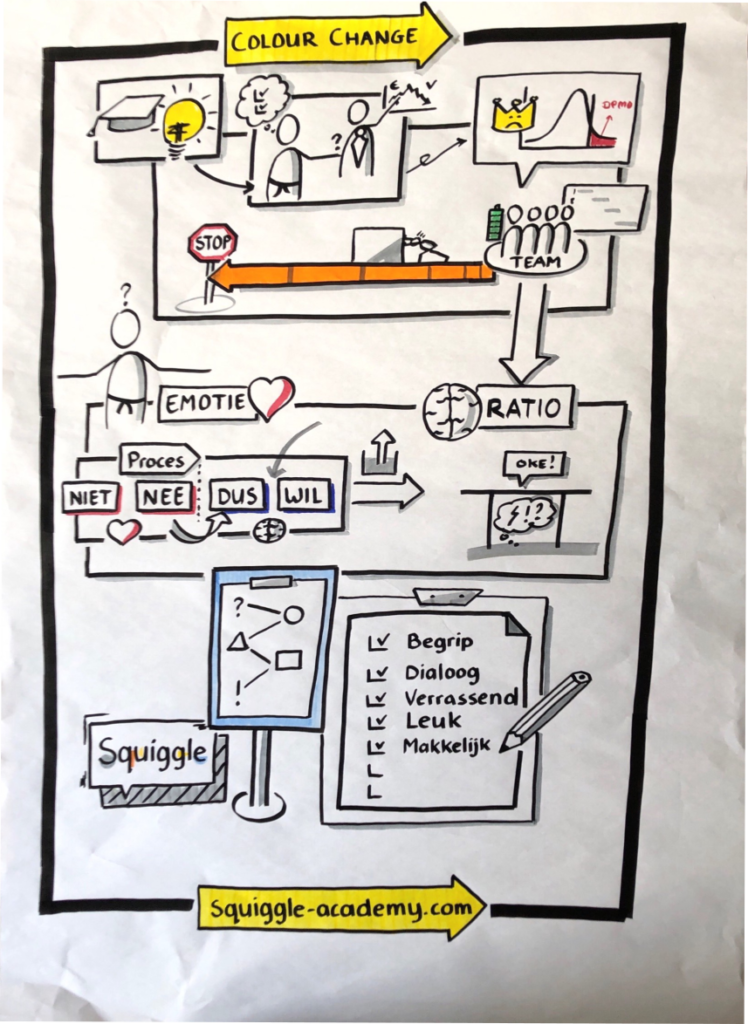 COLOUR CHANGE
?
€
DPMO
STOP
TEAM
?
EMOTIE
RATIO
Proces
OKE!
NIET
NEE
DUS
WIL
!?
?
!
Begrip
Dialoog
Verrassend
Leuk
Makkelijk
Squiggle
Squiggle-academy.com